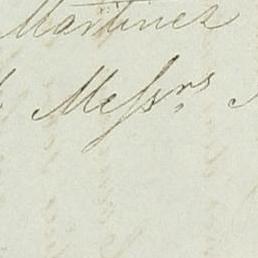 Martinez
Messrs